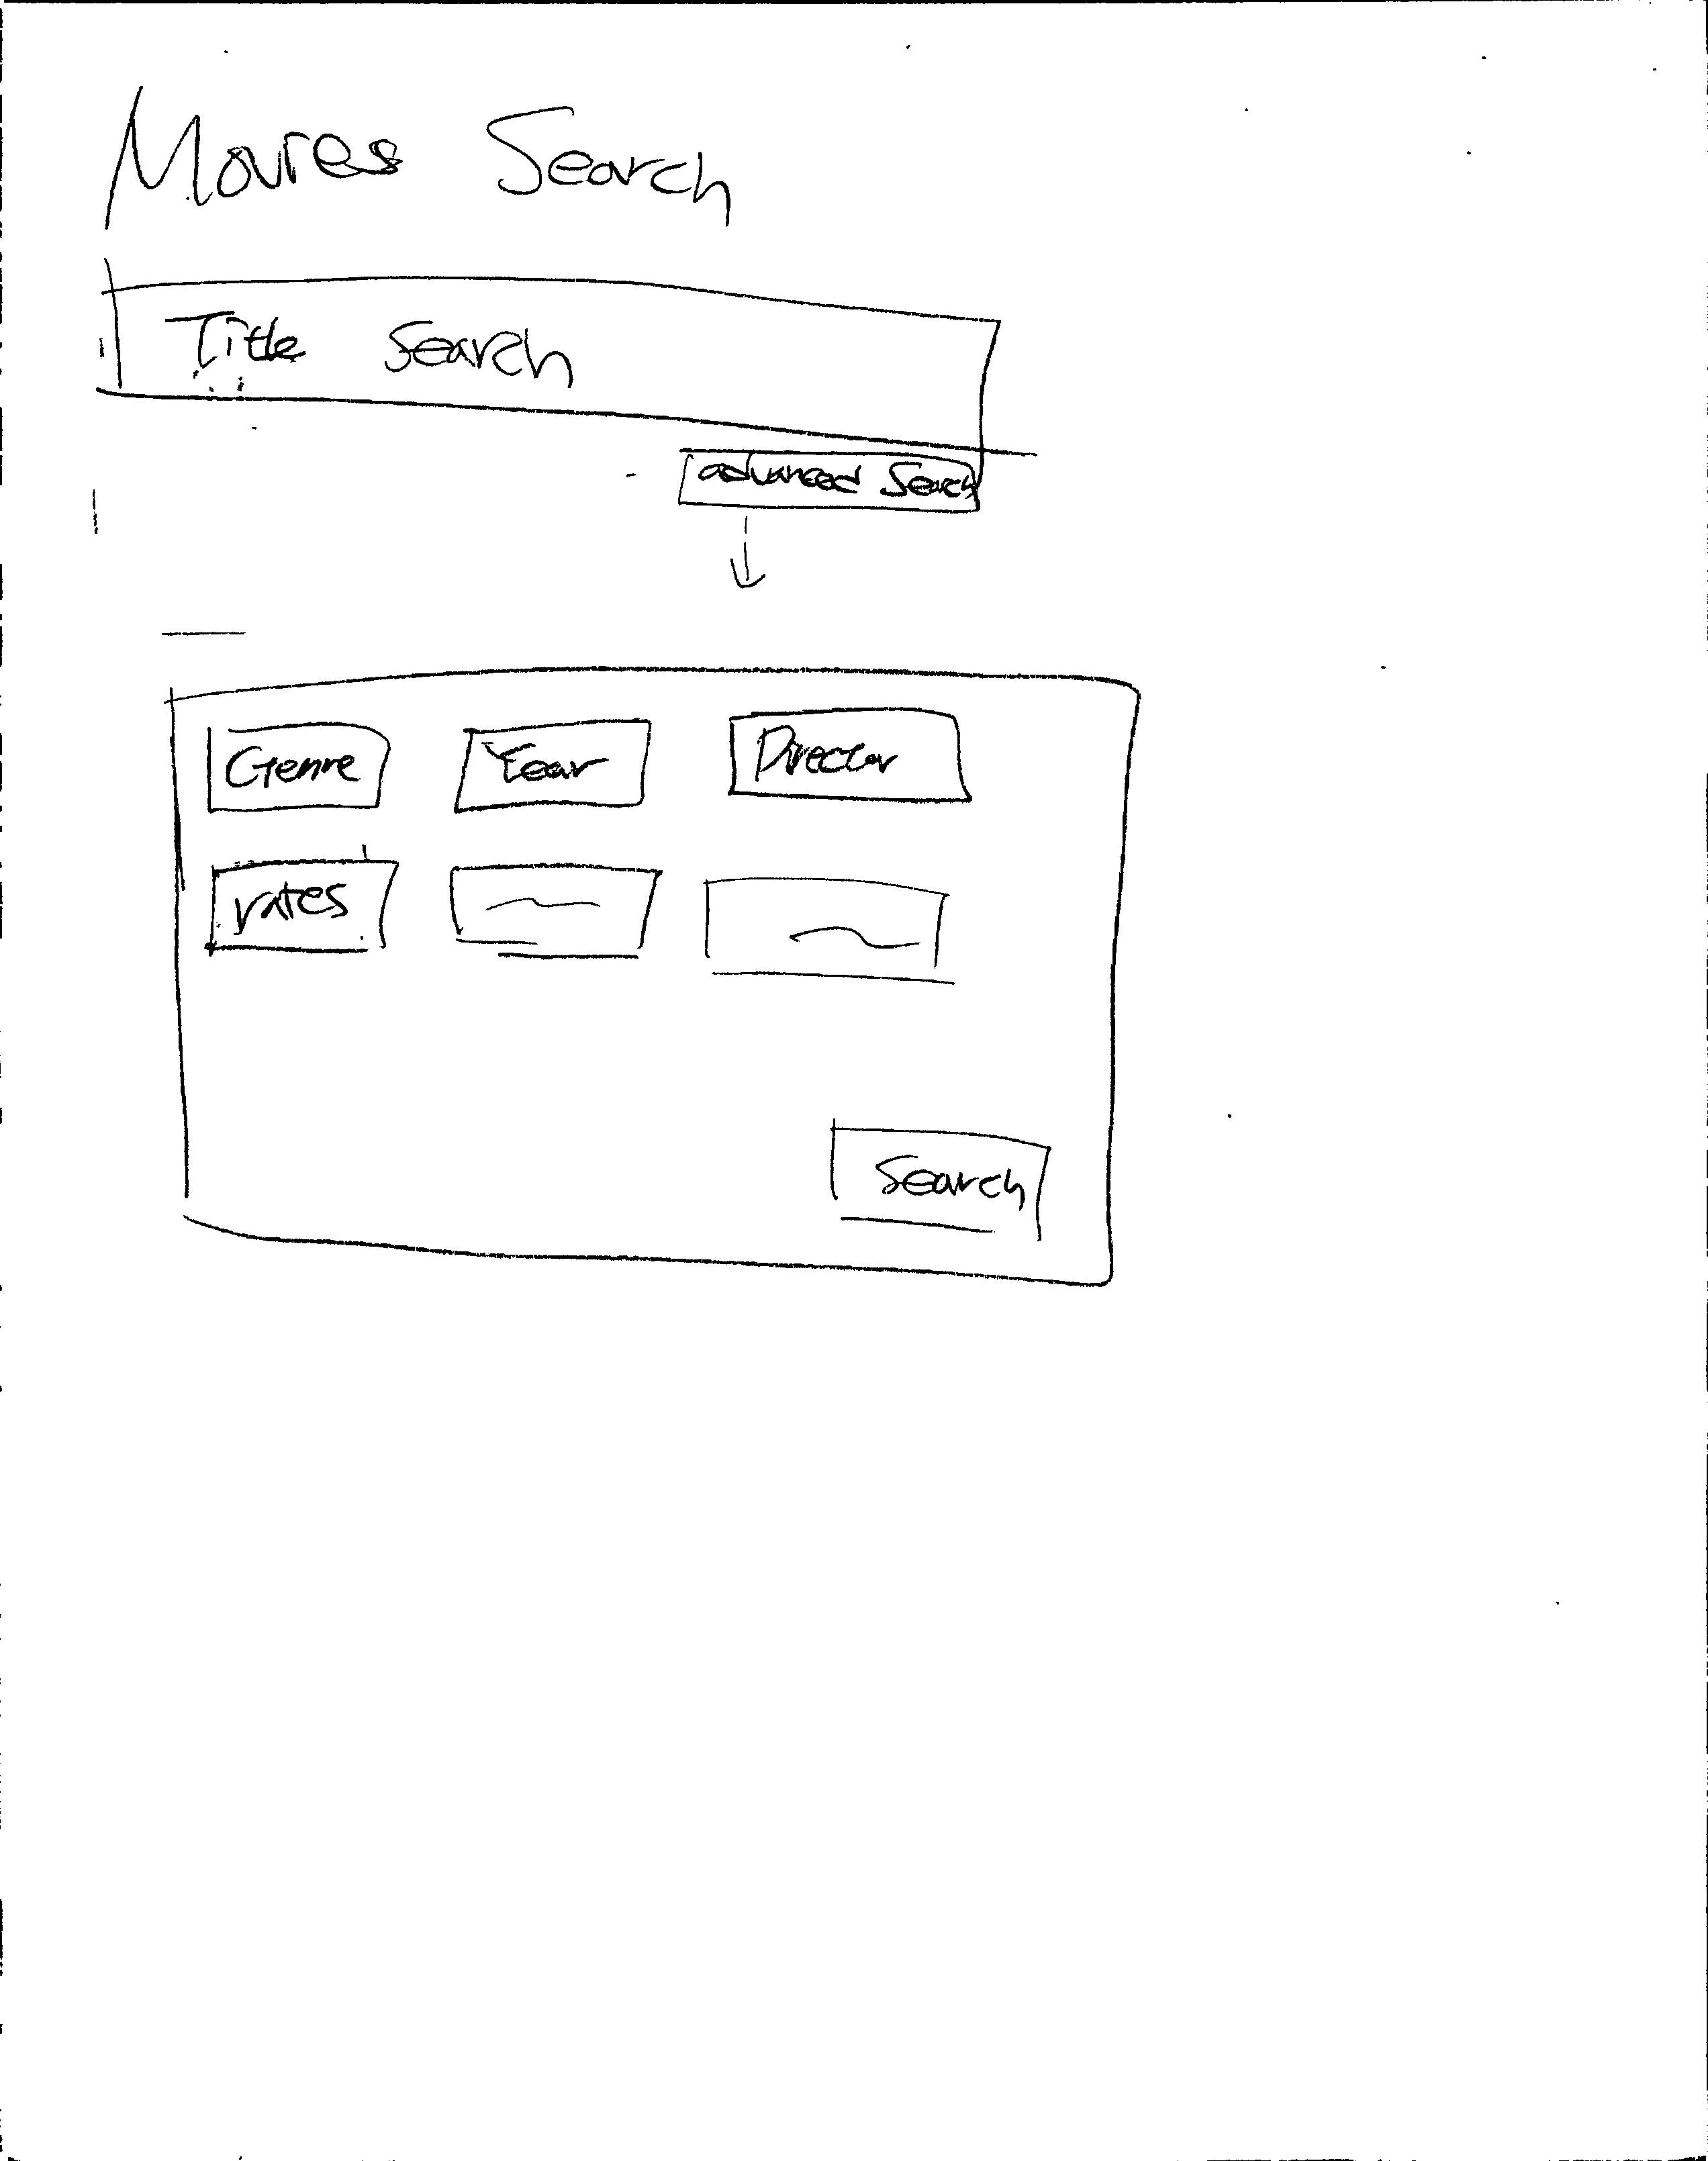 Movies Search
Title Search
advanced Search
Genre Year Director
rates
Search